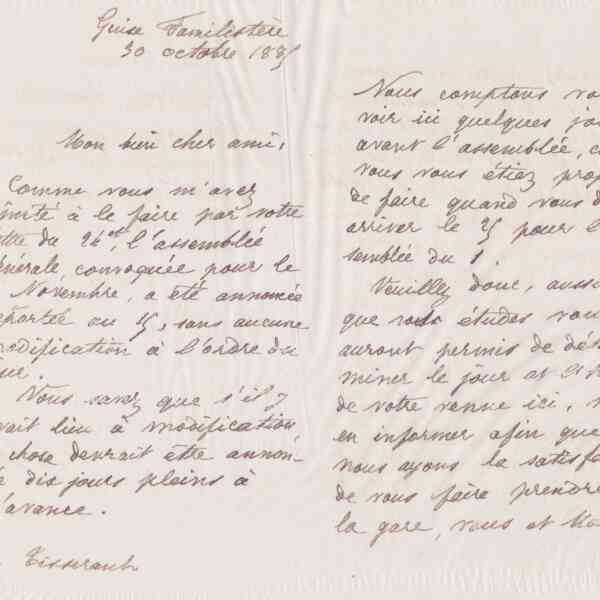 Guise Familistère
30 octobre 188
Mon bien cher ami,
Comme vous m'avez
invité à le faire par votre
lettre du 26 ct, l'assemblée
générale, convoquée pour le
Novembre, a été annoncée
reportée au 15, sans aucune
modification à l'ordre du
Vous savez que s'il y
avait lieu à modification
chose devrait être annon-
dix jours pleins à
l'avance.
Tisserant
Nous comptons
voir ici quelques
avant l'assemblée,
vous vous étiez
de faire quand vous
arriver le 25 pour l'
semblée du 1.
Veuillez donc,
que vos études
auront permis de
miner le jour et
de votre venue ici,
en informer afin que
nous ayons la
de vous faire prendre
la gare, vous et